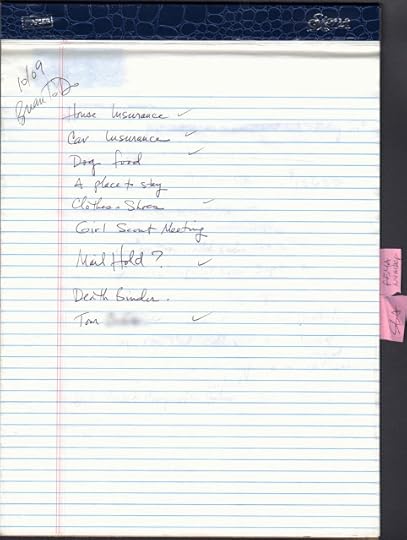 10/09
Brian To Do
House Insurance ✓
Car Insurance ✓
Dog food ✓
A place to stay
Clothes + Shoes ✓
Girl Scout Meeting
Mail Hold? ✓
Death Binder.
Tom ✓
FEMA
SBA